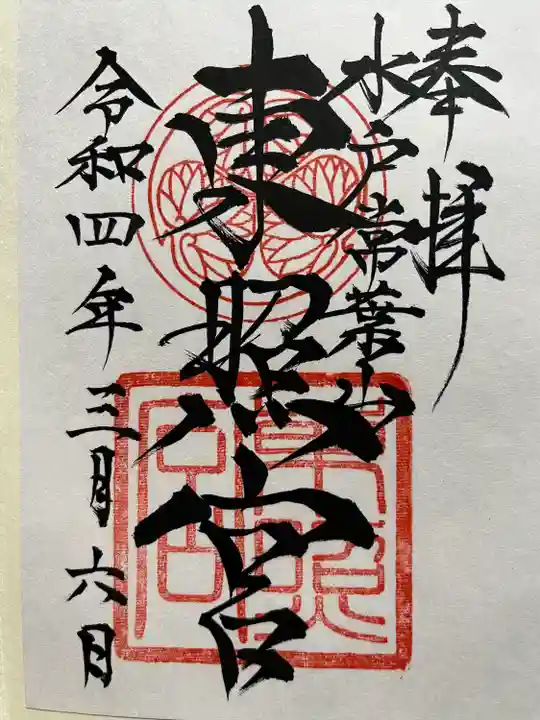 奉拝
水戸常葉山
東照宮
令和四年三月六日
東照宮印